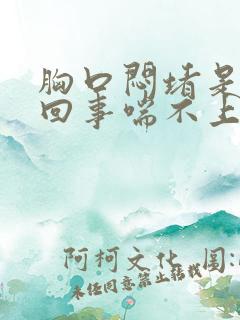 胸口闷堵是
回事喘不上
阿柯文化 图:
未经同意禁止转载